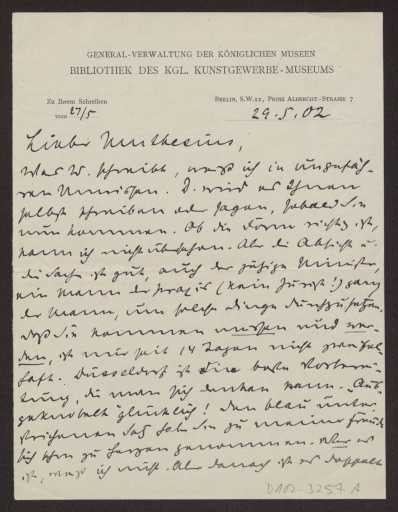 GENERAL-VERWALTUNG DER KÖNIGLICHEN MUSEEN
BIBLIOTHEK DES KGL. KUNSTGEWERBE-MUSEUMS
Zu Ihrem Schreiben
vom 27/5
BERLIN, S.W.11, PRINZ ALBRECHT-STRASSE 7
29.5.02
Lieber Muthesius,
Was W. schreibt, weiß ich in ungefäh-
ren Umrissen. D. wird es Ihnen
selbst schreiben oder sagen, sobald Sie
nun kommen. Ob die Form richtig ist,
kann ich nicht übersehen. Aber die Absicht u.
die Sache ist gut, auch der jetzige Minister,
ein Mann der Praxis (kein Jurist!) ganz
der Mann, um solche Dinge durchzusetzen.
Daß Sie kommen müssen und wer-
den, ist mir seit 14 Tagen nicht zweifel-
haft. Düsseldorf ist die beste Vorberei-
tung, die man sich denken kann.
glücklich! Den blau unter-
strichenen Satz habe ich zu meiner Freude
zu Herzen genommen. Wer es
ist, weiß ich nicht. Aber danach ist es doppelt
D102-3257 A